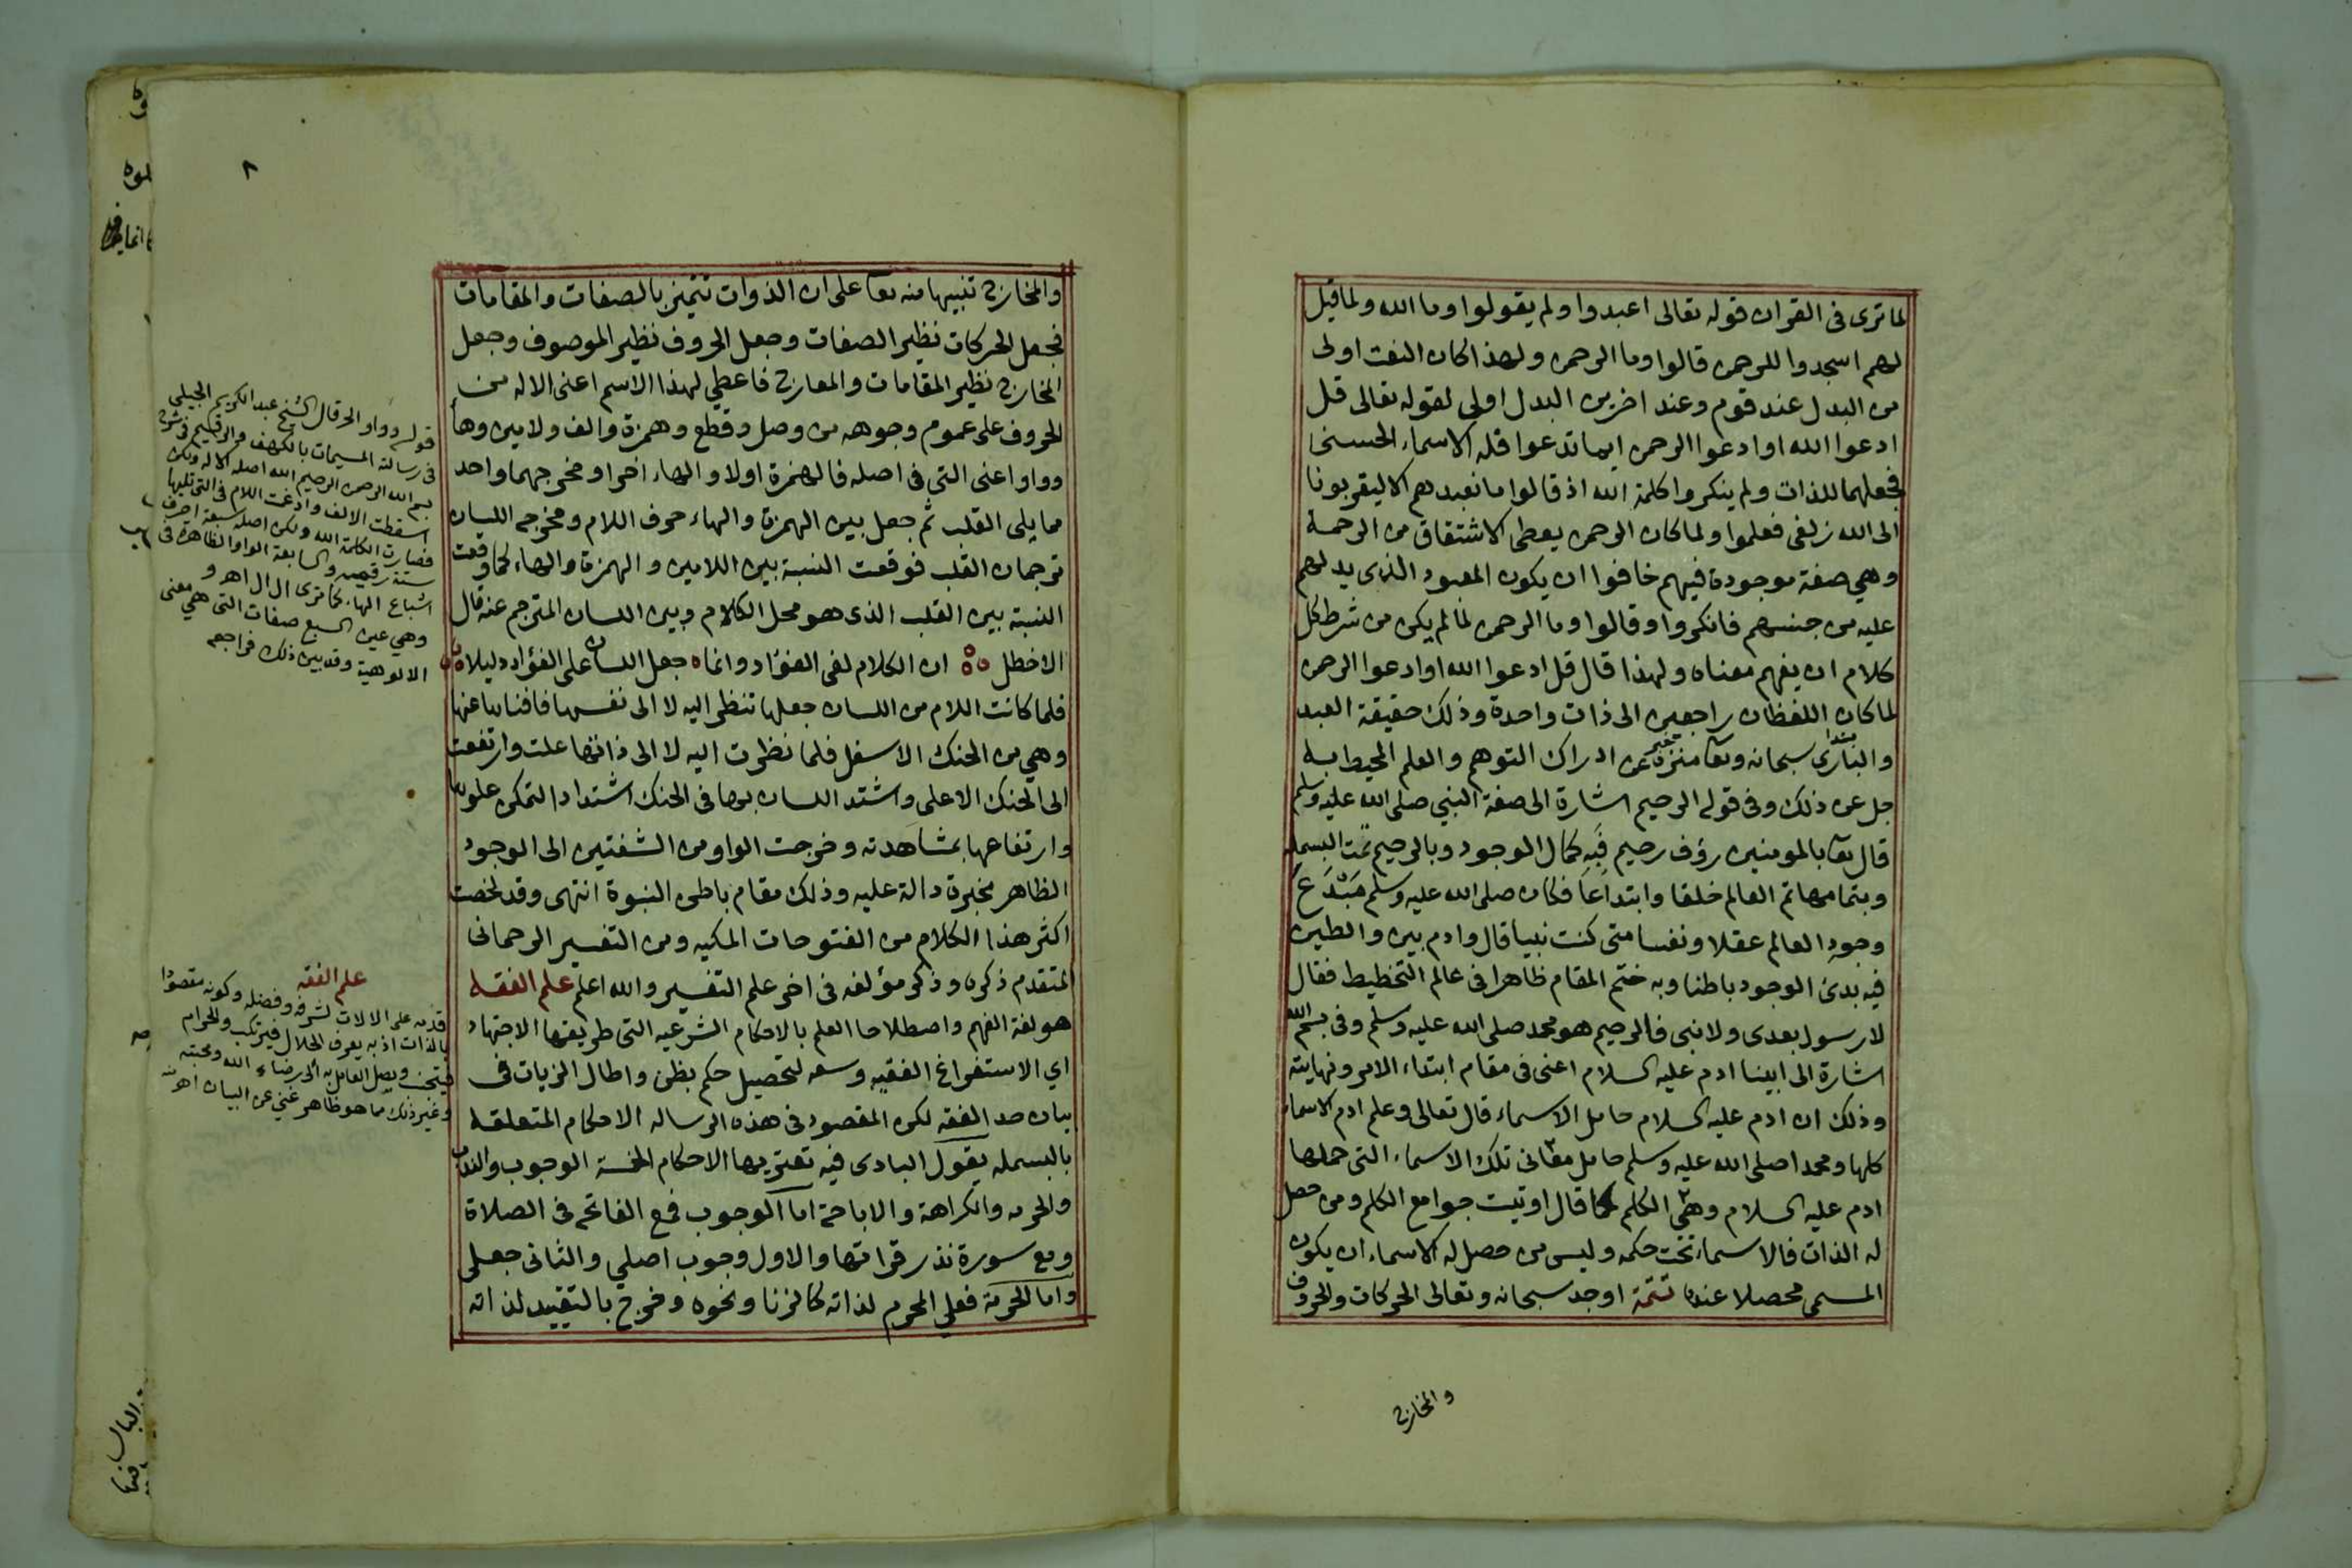 لما ترى فى القران قوله تعالى اعبدوا ولم يقولوا وما الله ولما قيل
لهم اسجدوا للرحمن قالوا وما الرحمن ولهذا كان النعت اولى
من البدل عند قوم وعند اخرين البدل اولى لقوله تعالى قل
ادعوا الله او ادعوا الرحمن ايما تدعوا فله الاسماء الحسنى
فجعلهما للذات ولم ينكروا كلمة الله اذ قالوا ما نعبدهم الا ليقربونا
الى الله زلفى فعلموا ولما كان الرحمن يعطى الاشتقاق من الرحمة
وهي صفة موجودة فيهم خافوا ان يكون المعبود الذى يدلهم
عليه من جنسهم فانكروا وقالوا وما الرحمن لما لم يكن من شرط كل
كلام ان يفهم معناه ولهذا قال قل ادعوا الله او ادعوا الرحمن
لما كان اللفظان راجعين الى ذات واحدة وذلك حقيقة العبد
والبارى سبحانه وتعا منزه عن ادراك التوهم والعلم المحيط به
جل عن ذلك وفى قوله الرحيم اشارة الى صفة النبي صلى الله عليه وسلم
قال تعا بالمومنين رؤف رحيم فبه كمال الوجود وبالرحيم تمت البسمله
وبتمامها تم العالم خلقا وابتداعا فكان صلى الله عليه وسلم مبتدع
وجود العالم عقلا ونفسا متى كنت نبيا قال وادم بين والطين
فيه بدئ الوجود باطنا وبه ختم المقام ظاهرا فى عالم التخطيط فقال
لا رسول بعدى ولا نبى فالرحيم هو محمد صلى الله عليه وسلم وفى بسم الله
اشارة الى ابينا ادم عليه السلام اعنى فى مقام ابتداء الامر ونهايته
وذلك ان ادم عليه السلام حامل الاسماء قال تعالى وعلم ادم الاسماء
كلها ومحمدا صلى الله عليه وسلم حامل معانى تلك الاسماء التى حملها
ادم عليه السلام وهى الكلم كما قال اوتيت جوامع الكلم ومن حصل
له الذات فالاسماء تحت حكمه وليس من حصل له الاسماء ان يكون
المسمى محصلا عنده تتمة اوجد سبحانه وتعالى الحركات والحروف
والمخارج
٨
والمخارج تنبيها منه تعا على ان الذوات تتميز بالصفات والمقامات
فجعل الحركات نظير الصفات وجعل الحروف نظير الموصوف وجعل
المخارج نظير المقامات والمعارج فاعطي لهذا الاسم اعنى الاله من
الحروف على عموم وجوهه من وصل وقطع وهمزة والف ولامين وها
وواو اعنى التى فى اصله فالهمزة اولا والهاء اخرا ومخرجهما واحد
مما يلى القلب ثم جعل بين الهمزة والهاء حرف اللام ومخرجه اللسان
ترجمان القلب فوقعت النسبة بين اللامين والهمزة والهاء كما وقعت
النسبة بين القلب الذى هو محل الكلام وبين اللسان المترجم عنه قال
الاخطل ان الكلام لفى الفؤاد وانما جعل اللسان على الفؤاد دليلا
فلما كانت اللام من اللسان جعلها تنظر اليه لا الى نفسها فافناها عنها
وهي من الحنك الاسفل فلما نظرت اليه لا الى ذاتها علت وارتفعت
الى الحنك الاعلى واشتد اللسان بها فى الحنك اشتدادا لتمكن علوها
وارتفاعها بمشاهدته وخرجت الواو من الشفتين الى الوجود
الظاهر مخبرة دالة عليه وذلك مقام باطن النبوة انتهى وقد لخصت
اكثر هذا الكلام من الفتوحات المكيه ومن التفسير الرحمانى
المتقدم ذكره وذكر مؤلفه فى اخر علم التفسير والله اعلم علم الفقه
هو لغة الفهم واصطلاحا العلم بالاحكام الشرعيه التى طريقها الاجتهاد
اي الاستفراغ الفقيه وسعه لتحصيل حكم بظن واطال الزيات فى
بيان حد الفقه لكن المقصود فى هذه الرساله الاحكام المتعلقه
بالبسمله يقول البادى فيه تعتريها الاحكام الخمسة الوجوب والندب
والحرمه والكراهة والاباحة اما الوجوب فمع الفاتحه فى الصلاة
ومع سورة نذر قراتها والاول وجوب اصلي والثانى جعلى
واما الحرمة فعلي المحرم لذاته كالزنا ونحوه وخرج بالتقييد لذاته
قوله وواو الخ قال الشيخ عبد الكريم الجيلى
فى رسالته المسيمات بالكهف والرقيم فى شرح
بسم الله الرحمن الرحيم الله اصله الاله ولكن
اسقطت الالف وادغت اللام فى التى تليها
فصارت الكلمة الله ولكن اصله سبعة احرف
ستة رقميه والسابعة الواو الظاهرة فى
اشباع الهاء كما ترى ال ال اهـ و
وهي عين السبع صفات التى هي معنى
الالوهية وقد بين ذلك فراجعه
علم الفقه
قدمه على الالات لشرفه وفضله وكونه مقصودا
بالذات اذ به يعرف الحلال فيرتكب والحرام
فيتجنب ويصل العامل به الى رضاء الله ومحبته
وغير ذلك مما هو ظاهر غني عن البيان اهـ